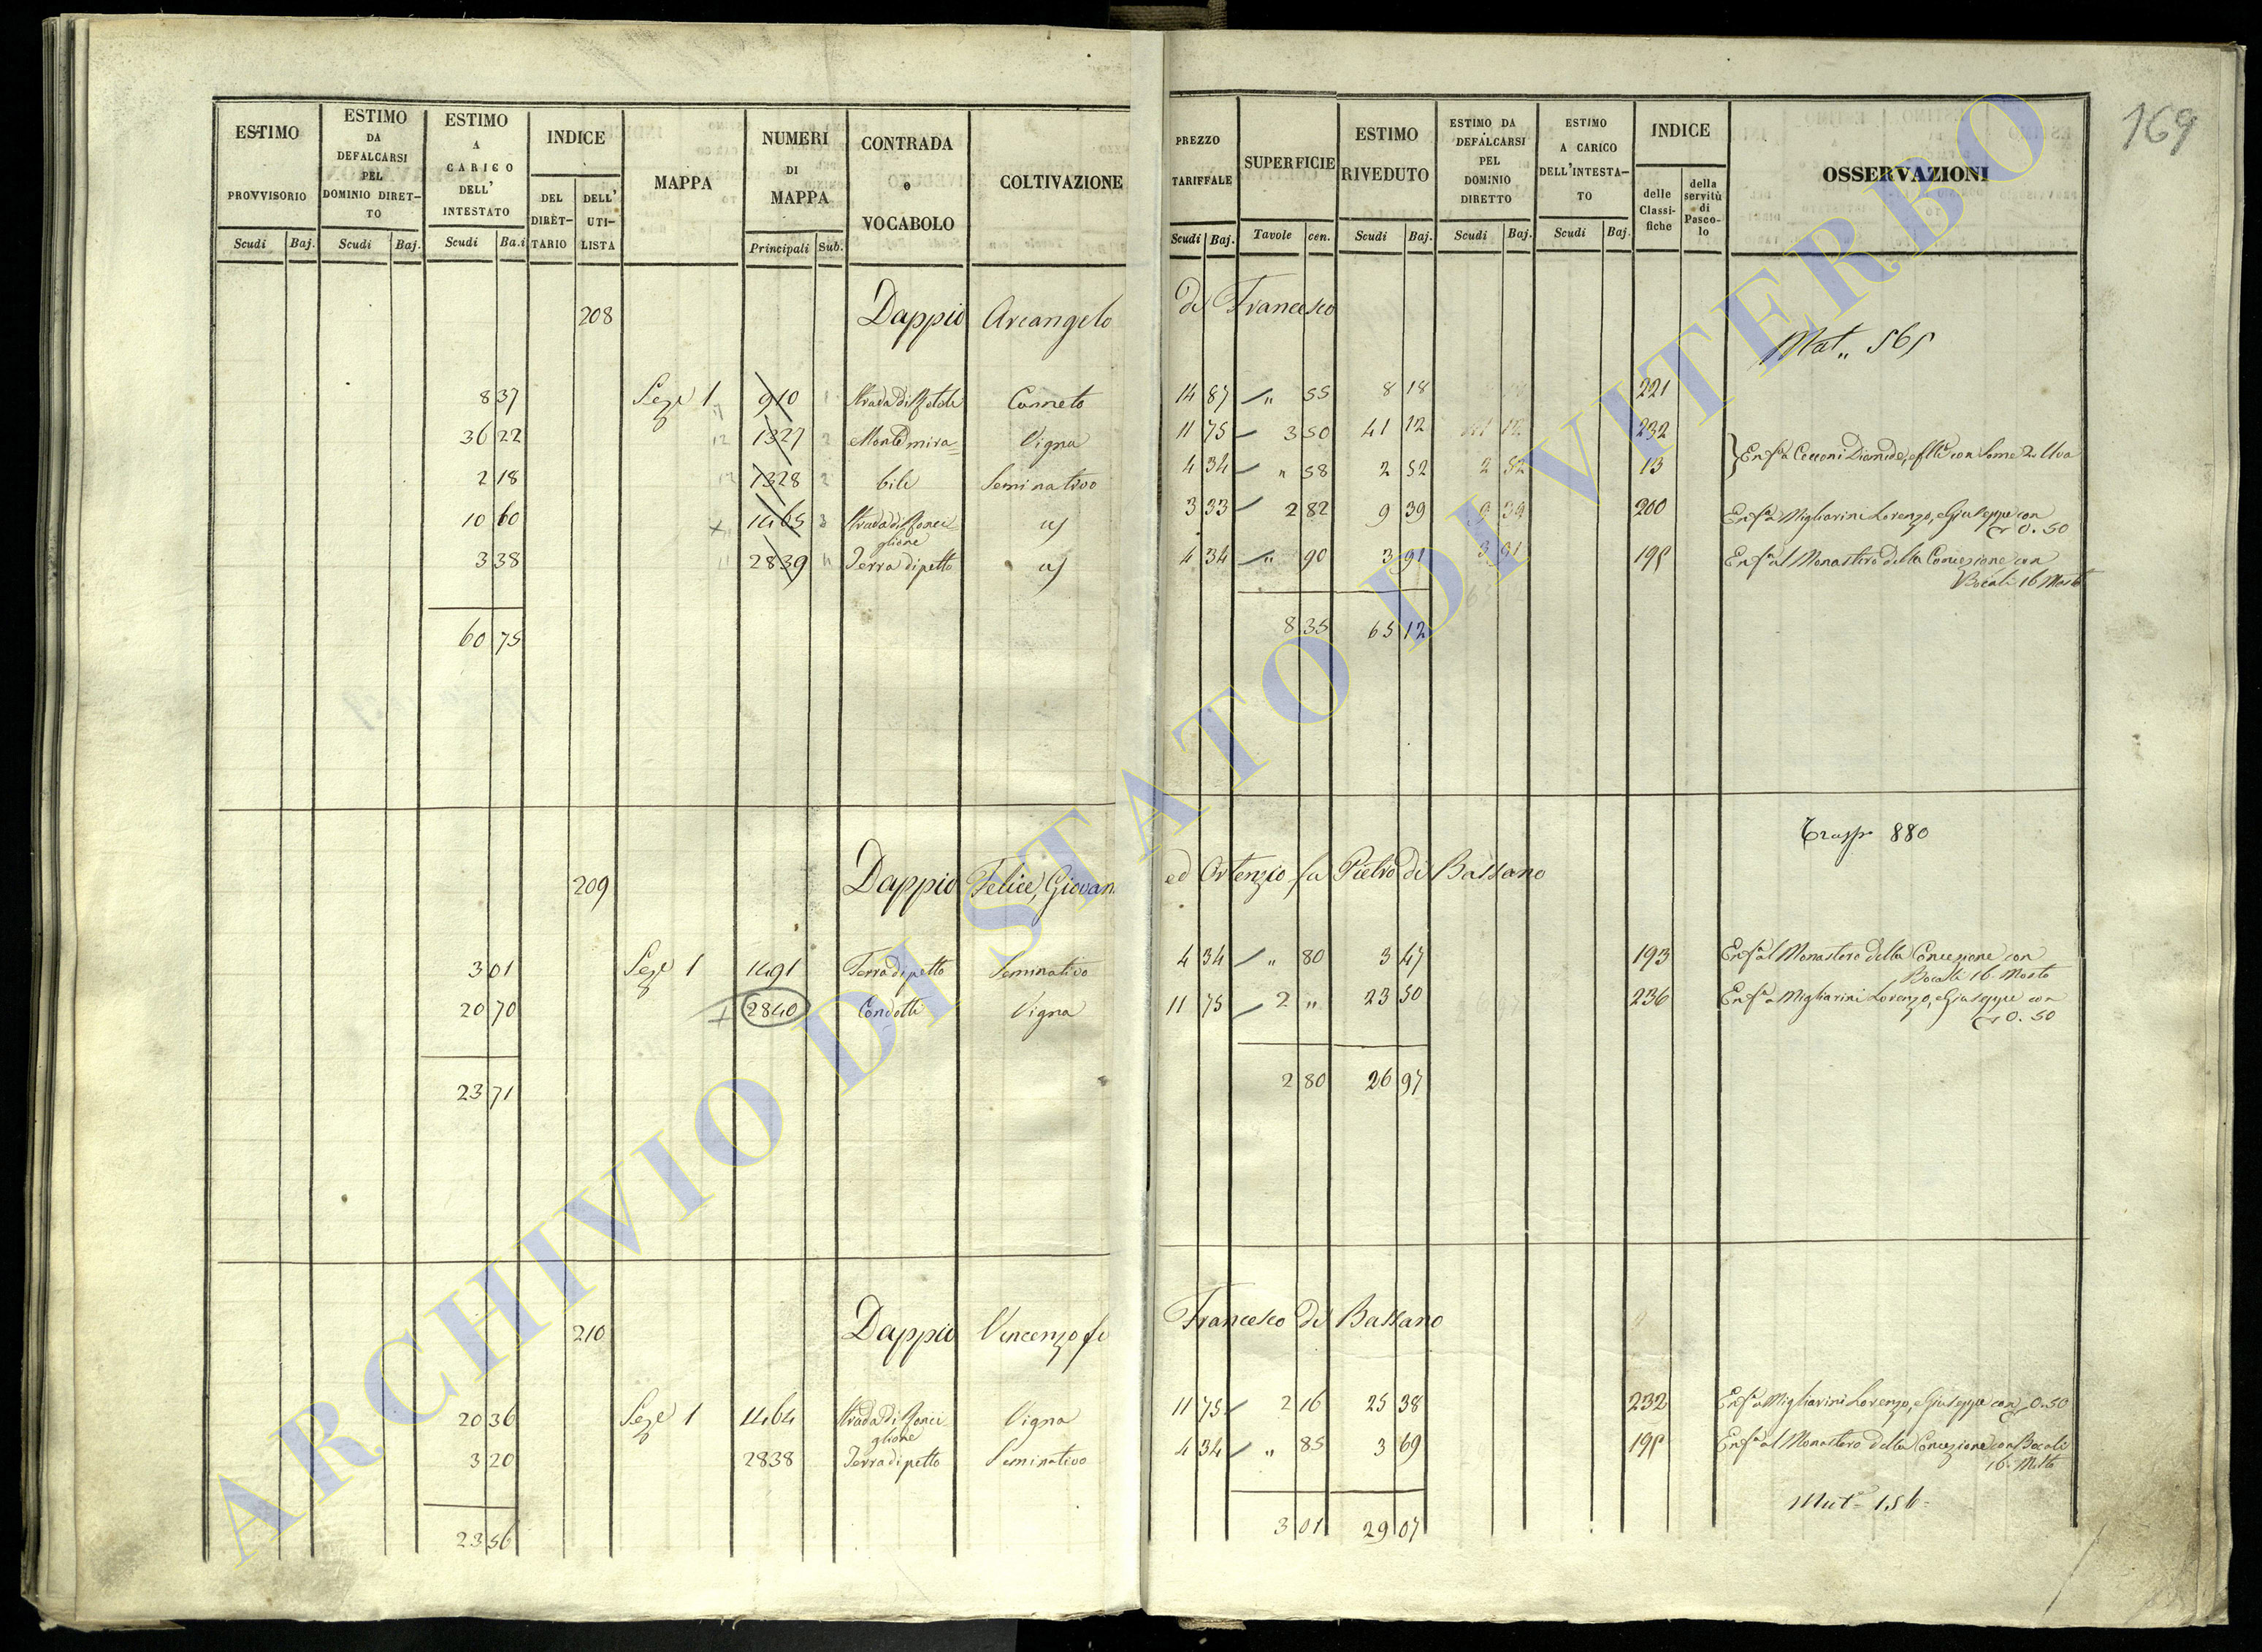 169
ESTIMO PROVVISORIO Scudi Baj.
ESTIMO DA DEFALCARSI PEL DOMINIO DIRETTO Scudi Baj.
ESTIMO A CARICO DELL' INTESTATO Scudi Ba.i
INDICE DEL DIRETTARIO DELL' UTILISTA
MAPPA
NUMERI DI MAPPA Principali Sub.
CONTRADA o VOCABOLO
COLTIVAZIONE
PREZZO TARIFFALE Scudi Baj.
SUPERFICIE Tavole cen.
ESTIMO RIVEDUTO Scudi Baj.
ESTIMO DA DEFALCARSI PEL DOMINIO DIRETTO Scudi Baj.
ESTIMO A CARICO DELL'INTESTATO Scudi Baj.
INDICE delle Classifiche della servitù di Pascolo
OSSERVAZIONI
208 Dappio Arcangelo di Francesco
Mat.. 565
8 37 Seze 1 910 Canneto 14 87 " 55 8 18 221
36 22 1327 2 Monte mira= Vigna 11 75 3 50 41 12 41 12 232
2 18 1328 2 bile Seminativo 4 34 " 58 2 52 2 52 13 Enf.a Cecconi Diomede, con Some 2 Uva
10 60 1465 3 Strada di Ronciglione 3 33 2 82 9 39 9 39 200 Enf.a Migliarini Lorenzo, e Giuseppe con 0.50
3 38 2839 Terra di petto 4 34 " 90 3 91 3 91 195 Enf.a al Monastero della Concezione con Bocali 16 Mosto
60 75 8 35 65 12
Trasp. 880
209 Dappio Felice, Giovan ed Ortenzio fu Pietro di Bassano
3 01 Seze 1 1491 Terra di petto Seminativo 4 34 " 80 3 47 193 Enf.a al Monastero della Concezione con Bocali 16. Mosto
20 70 2840 Condotti Vigna 11 75 2 " 23 50 236 Enf.a Migliarini Lorenzo, e Giuseppe con 0.50
23 71 2 80 26 97
210 Dappio Vincenzo fu Francesco di Bassano
20 36 Seze 1 1464 Strada di Ronciglione Vigna 11 75 2 16 25 38 232 Enf.a Migliarini Lorenzo, e Giuseppe con 0.50
3 20 2838 Terra di petto Seminativo 4 34 " 85 3 69 195 Enf.a al Monastero della Concezione con Bocali 16. Mosto
Mut.e 156=
23 56 3 01 29 07
ARCHIVIO DI STATO DI VITERBO